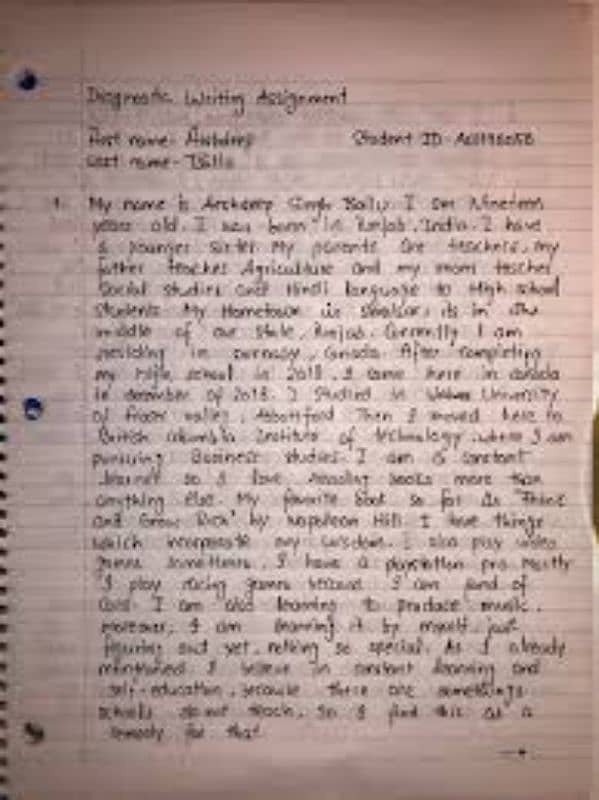 Diagnostic Writing Assignment
First name- Student ID-
Last name-
1. My name is Singh I am Nineteen
years old. I was born in Punjab, India. I have
a younger sister. My parents are teachers, my
father teaches Agriculture and my mom teaches
Social studies and Hindi language to High school
students. My Hometown is its in the
middle of our state, Punjab. Currently I am
residing in Canada. After completing
my High school in 2018, I came here in canada
in december of 2018. I studied in University
of fraser valley, Abbotsford. Then I moved here to
British columbia Institute of technology, where I am
pursuing Business studies. I am a constant
so I love reading books more than
anything else. My favorite book so far is "Think
and Grow Rich" by Napoleon Hill. I love things
which incorporate my wisdom. I also play video
games sometimes. I have a playstation pro. Mostly
I play racing games because I am fond of
cars. I am also learning to produce music.
Moreover, I am learning it by myself, just
figuring out yet, nothing so special. As I already
mentioned I believe in constant learning and
self-education, because there are somethings
schools do not teach, so I find this as a
remedy for that.